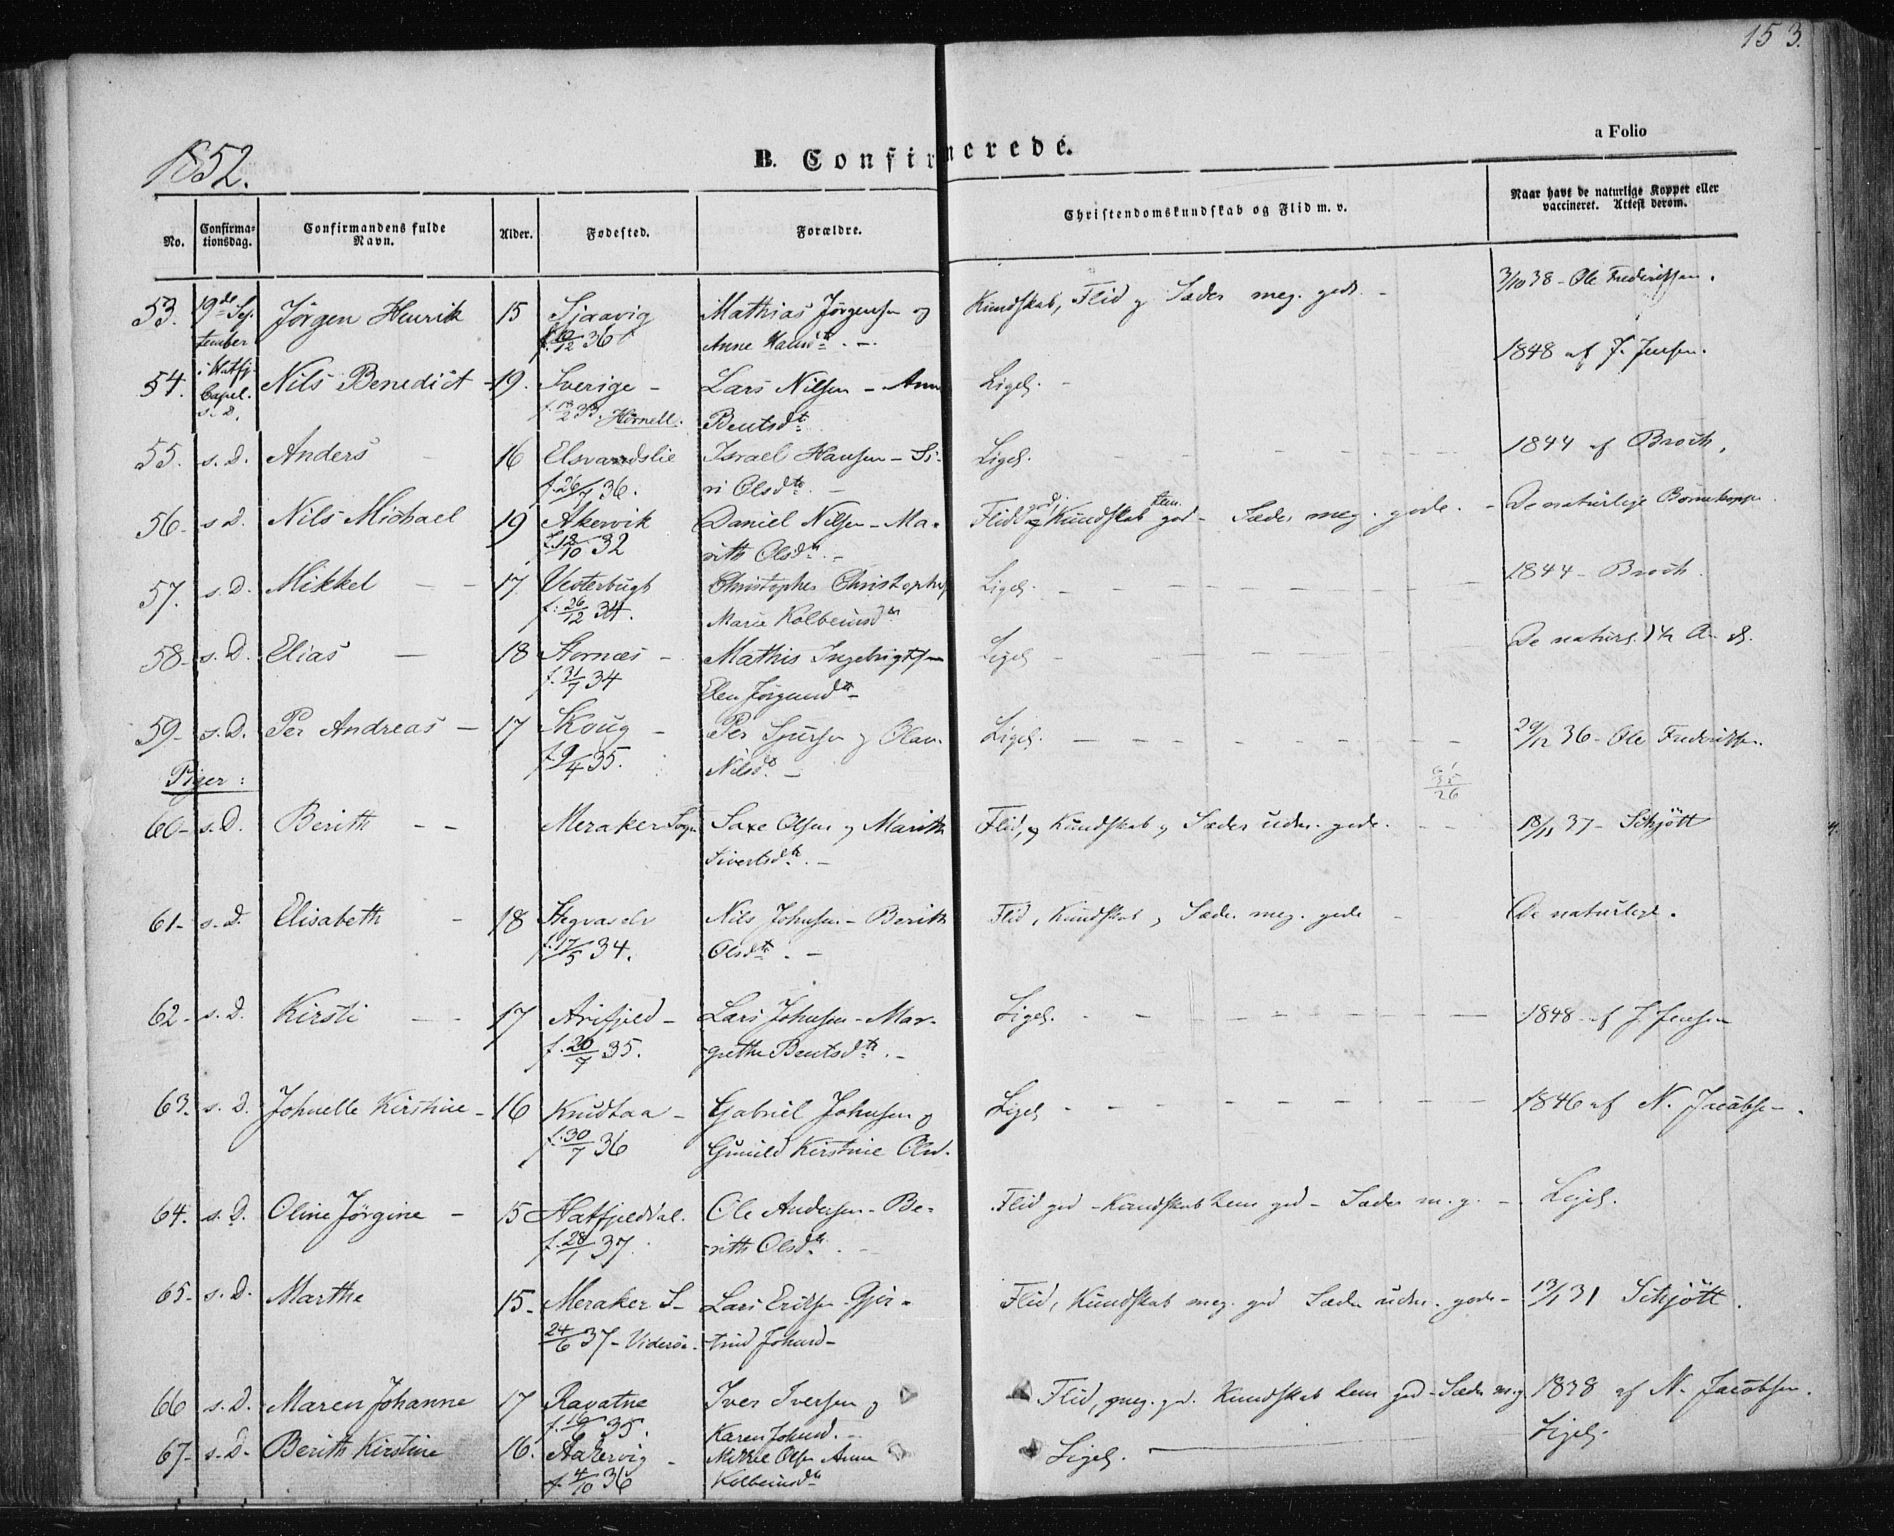 153.
a Folio
1852.
B. Confirmerede.
No.
Confirma-
tionsdag.
Confirmandens fulde
Navn.
Alder.
Fødested.
Forældre.
Christendomskundskab og Flid m. v.
Naar havt de naturlige Kopper eller
vaccineret. Attest derom.
53. 19de Sep Jørgen Henrik 15 Sjaavig Mathias Jørgensen og Kundskab, Flid og Sæder meg. gode. - 3/10 38 - Ole Fredriksen.
tember f. 12 36 Anne Hansdtr. -
54. i Hatfj. Nils Benedict - 19. Sverige - Lars Nilsen - Anne Ligel. - 1848 af J. Jensen.
Capel. s. D. f. 2 33. Hörnell. Bentsdtr
55. s. D. Anders 16 Elsvandslie Israel Hansen - Si- Ligel. 1844 af Broch.
f. 26/7 36. ri Olsdtr. -
56. s D. Nils Michael 19 Akervik Daniel Nilsen - Ma- Flid god Kundskab tem. god - Sæder meg. gode. - De naturlige Børnekopper.
f. 12/10 32 rith Olsdtr. -
57. s. D. Mikkel - - 17. Vesterbugt Christopher Christophers Ligel. 1844 - Broch.
f. 26/12 34. Marie Kolbeinsdtr
58. s. D. Elias - 18 Stornæs - Mathis Ingebrigtsen Ligel - De naturl.
f. 31/7 34 Elen Jørgensdtr -
59. s. D. Per Andreas - 17 Skoug - Per Sjursen og Olava Ligel. 29/12 36 - Ole Fredriksen.
f. 9/4 35. Nilsd. -
Piger:
60. s. D. Berith - - Meraker Sogn Saxe Olsen og Marith Flid, og Kundskab og Sæder udm. gode. 18/11 37 - Schjött
Sivertsdtr. -
61. s. D. Elisabeth - 18 Stegvaselv Nils Johnsen - Berith Flid, Kundskab, Sæder meg. gode - De naturlige.
f. 17/5 34. Olsdtr. -
62. s. D. Kirsti - - 17 Arefjeld - Lars Johnsen - Mar- Ligel. 1848 af J Jensen
f. 20/7 35. grethe Bentsdtr. -
63. s. D. Johnelle Kirstine - 16 Knudtaa - Gabriel Johnsen og Ligel 1846 af N. Jacobsen.
f. 30/7 36 Gunild Kirstine Olsd.
64. s. D. Oline Jørgine - 15 Hatfjelddal. Ole Andersen - Be- Flid god - Kundskab tem god - Sæder m. g. - Ligel.
f. 28/1 37. rith Olsdtr.
65. s. D. Marthe 15. Meraker S- Lars Eriksen - Gjer- Flid, Kundskab meg. god Sæder udm. gode - 13/1 31 Schjött.
24/6 37 - trud Johnsd -
66 s. D. Maren Johanne 17 Ravatne Iver Iversen og Flid, meg. god. Kundskab tem god - Sæder m. g 1838 af N. Jacobsen.
f. 35. Karen Johnsd. -
67. s. D. Berith Kirstine 16. Aakervig - Mikkel Olsen Anne Ligel. Ligel.
f. 4/10 36 Kolbeinsdtr